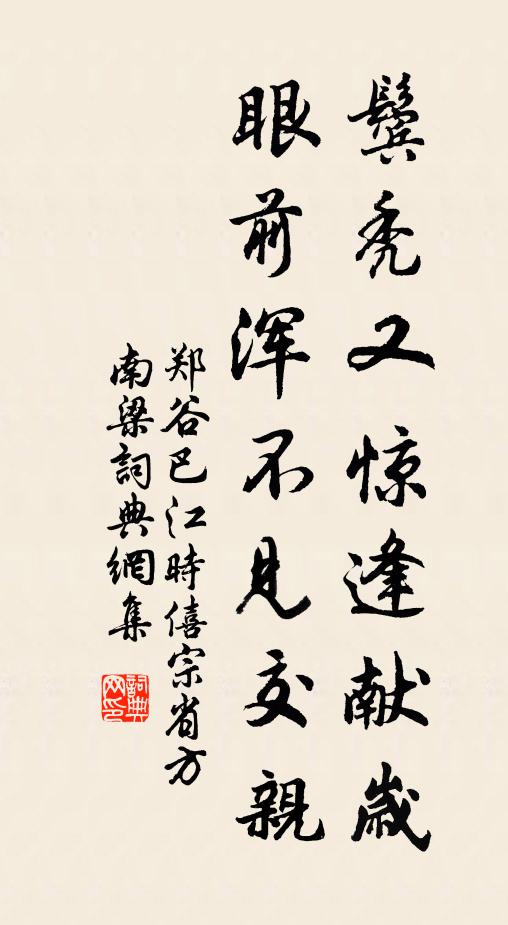 鬓秃又惊逢献歳
眼前浑不见交親
郑谷巴江時僖宗省方
南梁詞典網集
詞典网印